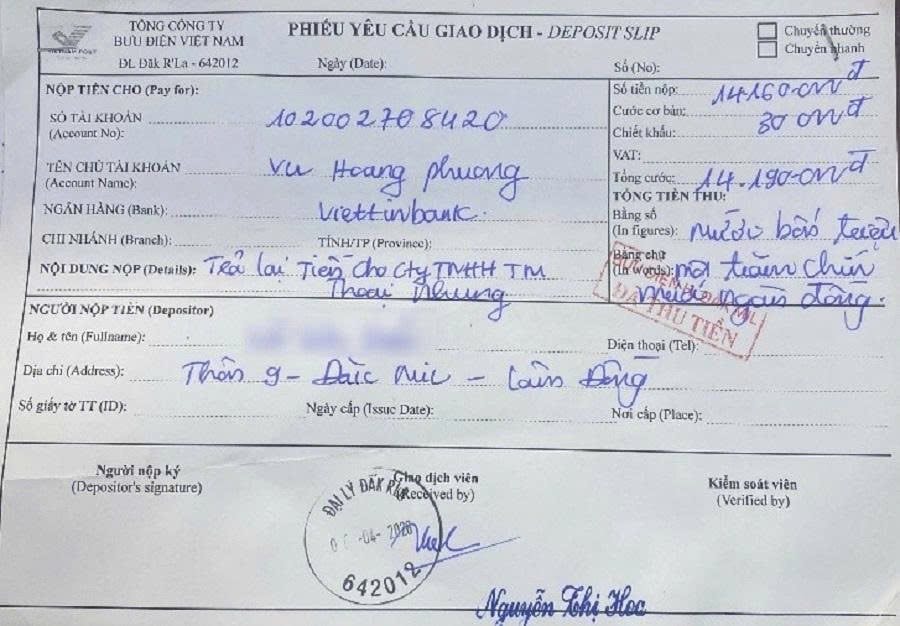 TỔNG CÔNG TY
BƯU ĐIỆN VIỆT NAM
ĐL Đăk R'La - 642012
VIETNAM POST
PHIẾU YÊU CẦU GIAO DỊCH - DEPOSIT SLIP
Chuyển thường
Chuyển nhanh
Ngày (Date):
Số (No):
NỘP TIỀN CHO (Pay for):
SỐ TÀI KHOẢN 102002708420
(Account No):
TÊN CHỦ TÀI KHOẢN Vu Hoang Phuong
(Account Name):
NGÂN HÀNG (Bank): Viettinbank.
CHI NHÁNH (Branch): TỈNH/TP (Province):
NỘI DUNG NỘP (Details): Trả lại Tiền cho Cty TMHH TM
Thoại Nhung
Số tiền nộp: 14.160.000đ
Cước cơ bản: 30 000đ
Chiết khấu:
VAT:
Tổng cước: 14.190.000đ
TỔNG TIỀN THU:
Bằng số
(In figures): Mười bốn triệu
Bằng chữ
(In Words): một trăm chín
mươi ngàn đồng.
ĐÃ THU TIỀN
NGƯỜI NỘP TIỀN (Depositor)
Họ & tên (Fullname): Điện thoại (Tel):
Địa chỉ (Address): Thôn 9 - Đăc Mil - Lâm Đồng
Số giấy tờ TT (ID): Ngày cấp (Issue Date): Nơi cấp (Place):
Người nộp ký
(Depositor's signature)
Giao dịch viên
(Received by)
Kiểm soát viên
(Verified by)
ĐẠI LÝ ĐĂK
642012
Nguyễn Thị Học